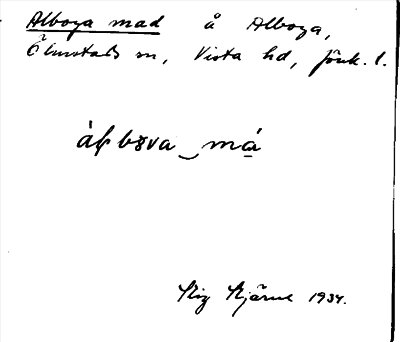 Alboga mad å Alboga,
Ölmstads sn, Vista hd, Jönk. l.
má
Stig Bjärne 1934.